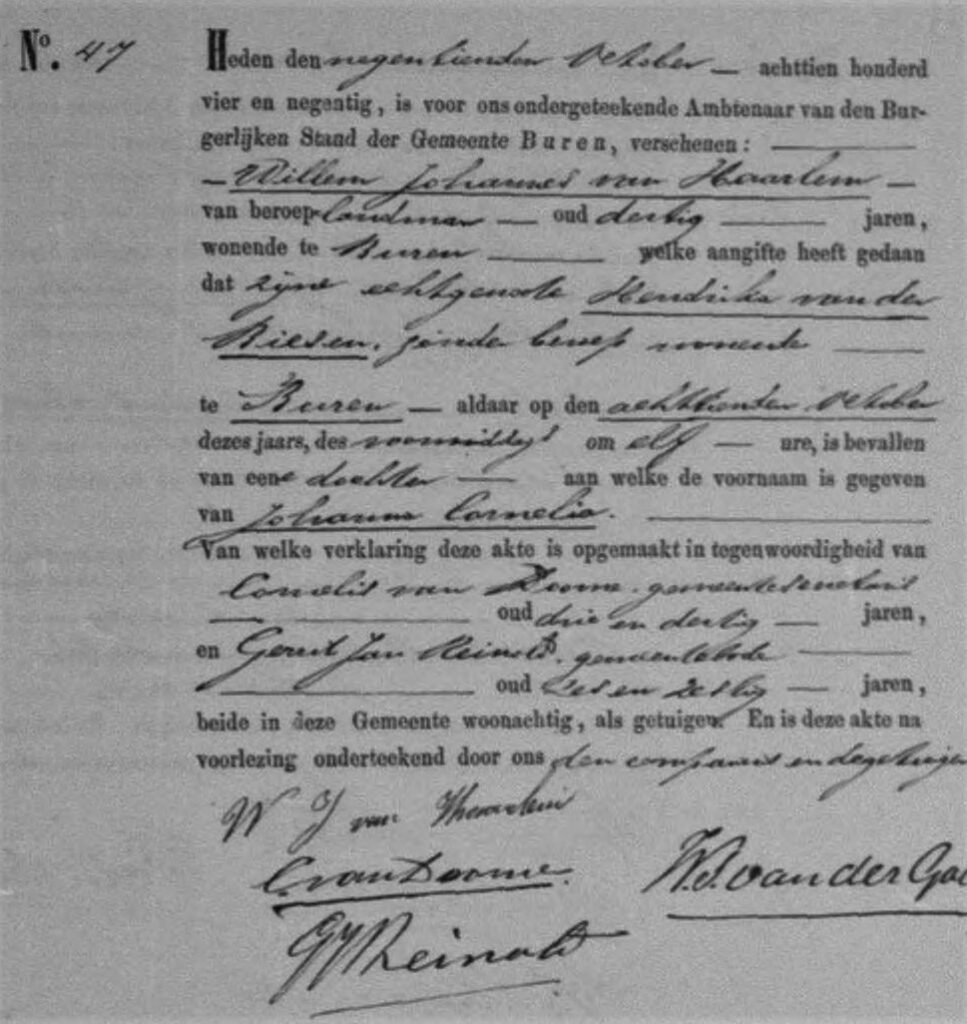 No. 47
Heden den negentienden October — achttien honderd
vier en negentig, is voor ons ondergeteekende Ambtenaar van den Bur-
gerlijken Stand der Gemeente Buren, verschenen:
Willem Johannes van Haarlem
van beroep landman — oud dertig — jaren,
wonende te Buren — welke aangifte heeft gedaan
dat zijne echtgenoote Hendrika van der
Biesen, zonder beroep wonende
te Buren — aldaar op den achttienden October
dezes jaars, des voormiddags om elf — ure, is bevallen
van eene dochter — aan welke de voornaam is gegeven
van Johanna Cornelia.
Van welke verklaring deze akte is opgemaakt in tegenwoordigheid van
Cornelis van Doorne, gemeentesecretaris
oud drie en dertig — jaren,
en Gerrit Jan Reinold, gemeentebode
oud zes en zestig — jaren,
beide in deze Gemeente woonachtig, als getuigen. En is deze akte na
voorlezing onderteekend door ons den comparant en de getuigen
W J van Haarlem
C. van Doorne.
W. J. van der
GJ Reinold